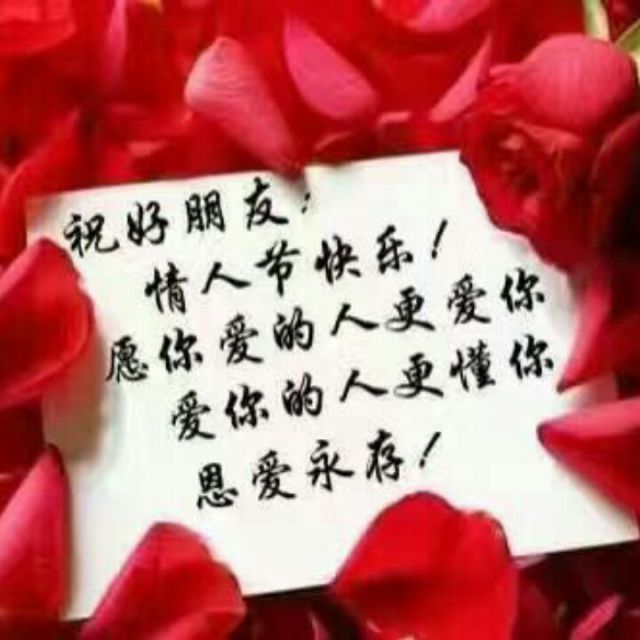 祝好朋友:
情人节快乐!
愿你爱的人更爱你
爱你的人更懂你
恩爱永存!